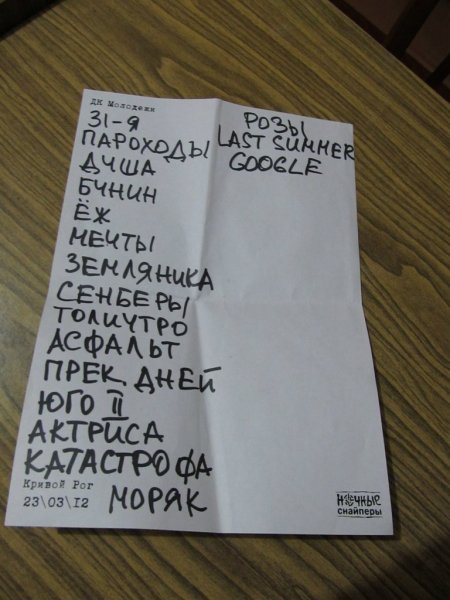 ДК Молодежи
31-Я
ПАРОХОДЫ
ДУША
БУНИН
ЁЖ
МЕЧТЫ
ЗЕМЛЯНИКА
СЕНБЕРЫ
ТОЛИУТРО
АСФАЛЬТ
ПРЕК. ДНЕЙ
ЮГО II
АКТРИСА
КАТАСТРОФА
МОРЯК
Кривой Рог
23\03\12
РОЗЫ
LAST SUMMER
GOOGLE
НОЧНЫЕ
снайперы